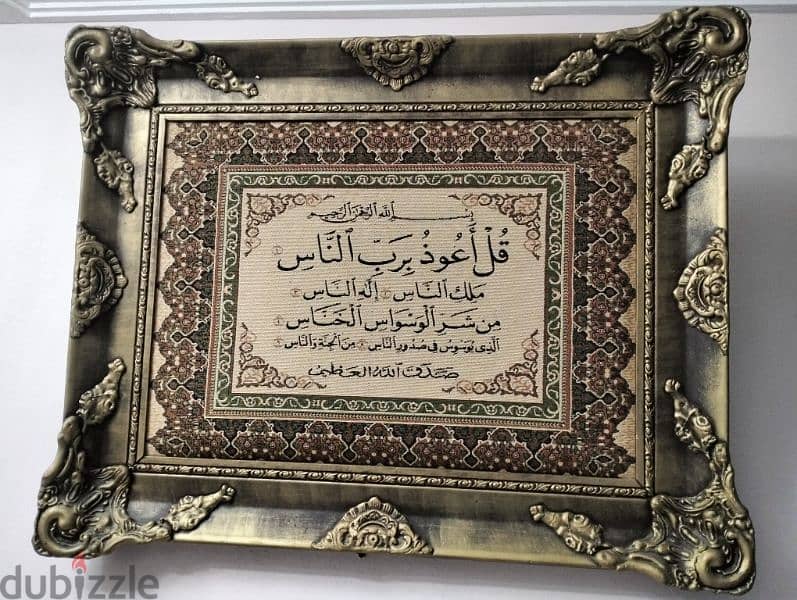 بسم الله الرحمن الرحيم
قُلْ أَعُوذُ بِرَبِّ النَّاسِ ١
مَلِكِ النَّاسِ ٢ إِلَٰهِ النَّاسِ ٣
مِن شَرِّ الْوَسْوَاسِ الْخَنَّاسِ ٤
الَّذِي يُوَسْوِسُ فِي صُدُورِ النَّاسِ ٥ مِنَ الْجِنَّةِ وَالنَّاسِ ٦
صدق الله العظيم
dubizzle